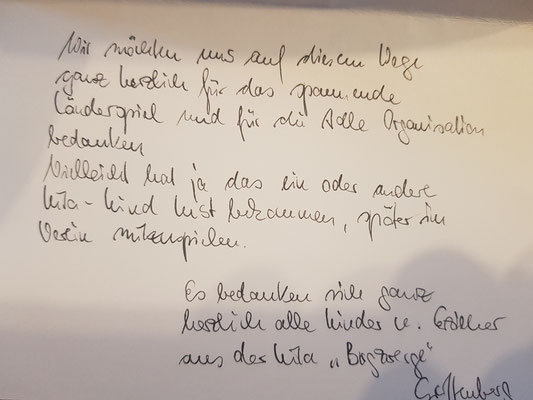 Wir möchten uns auf diesem Wege
ganz herzlich für das spannende
Länderspiel und für die tolle Organisation
bedanken
Vielleicht hat ja das ein oder andere
Kita-Kind Lust bekommen, später im
Verein mitzuspielen.
Es bedanken sich ganz
herzlich alle Kinder u. Erzieher
aus der Kita „Burgzwerge"